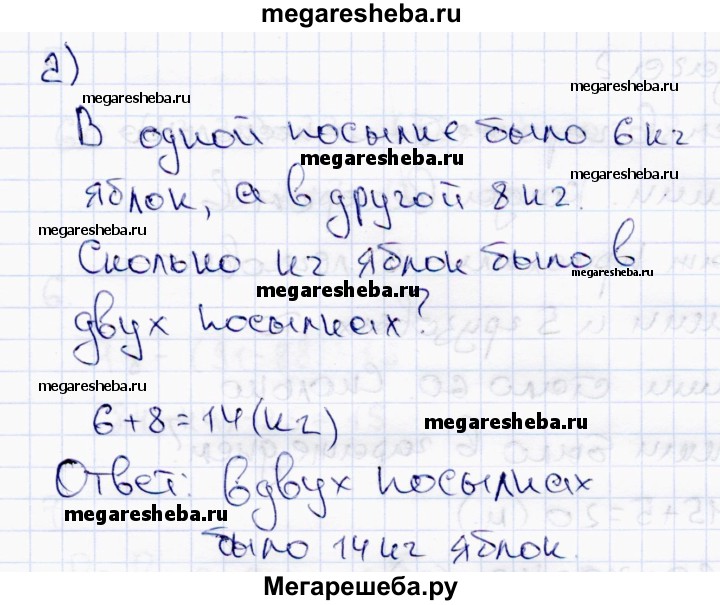 megaresheba.ru
2)
megaresheba.ru
megaresheba.ru
В одной посылке было 6 кг
megaresheba.ru
яблок, а в другой 8 кг.
megaresheba.ru
megaresheba.ru
Сколько кг яблок было в
megaresheba.ru
megaresheba.ru
двух посылках?
megaresheba.ru
6+8=14(кг)
megaresheba.ru
Ответ: в двух посылках
megaresheba.ru
megaresheba.ru
было 14 кг яблок.
Мегарешеба.ру